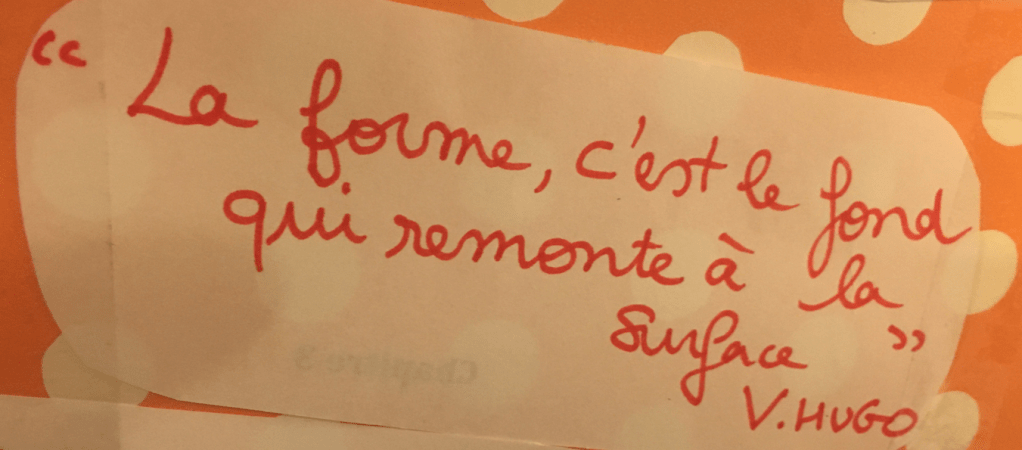 “ La forme, c'est le fond
qui remonte à la
surface ”
V. HUGO
Chapitre 3